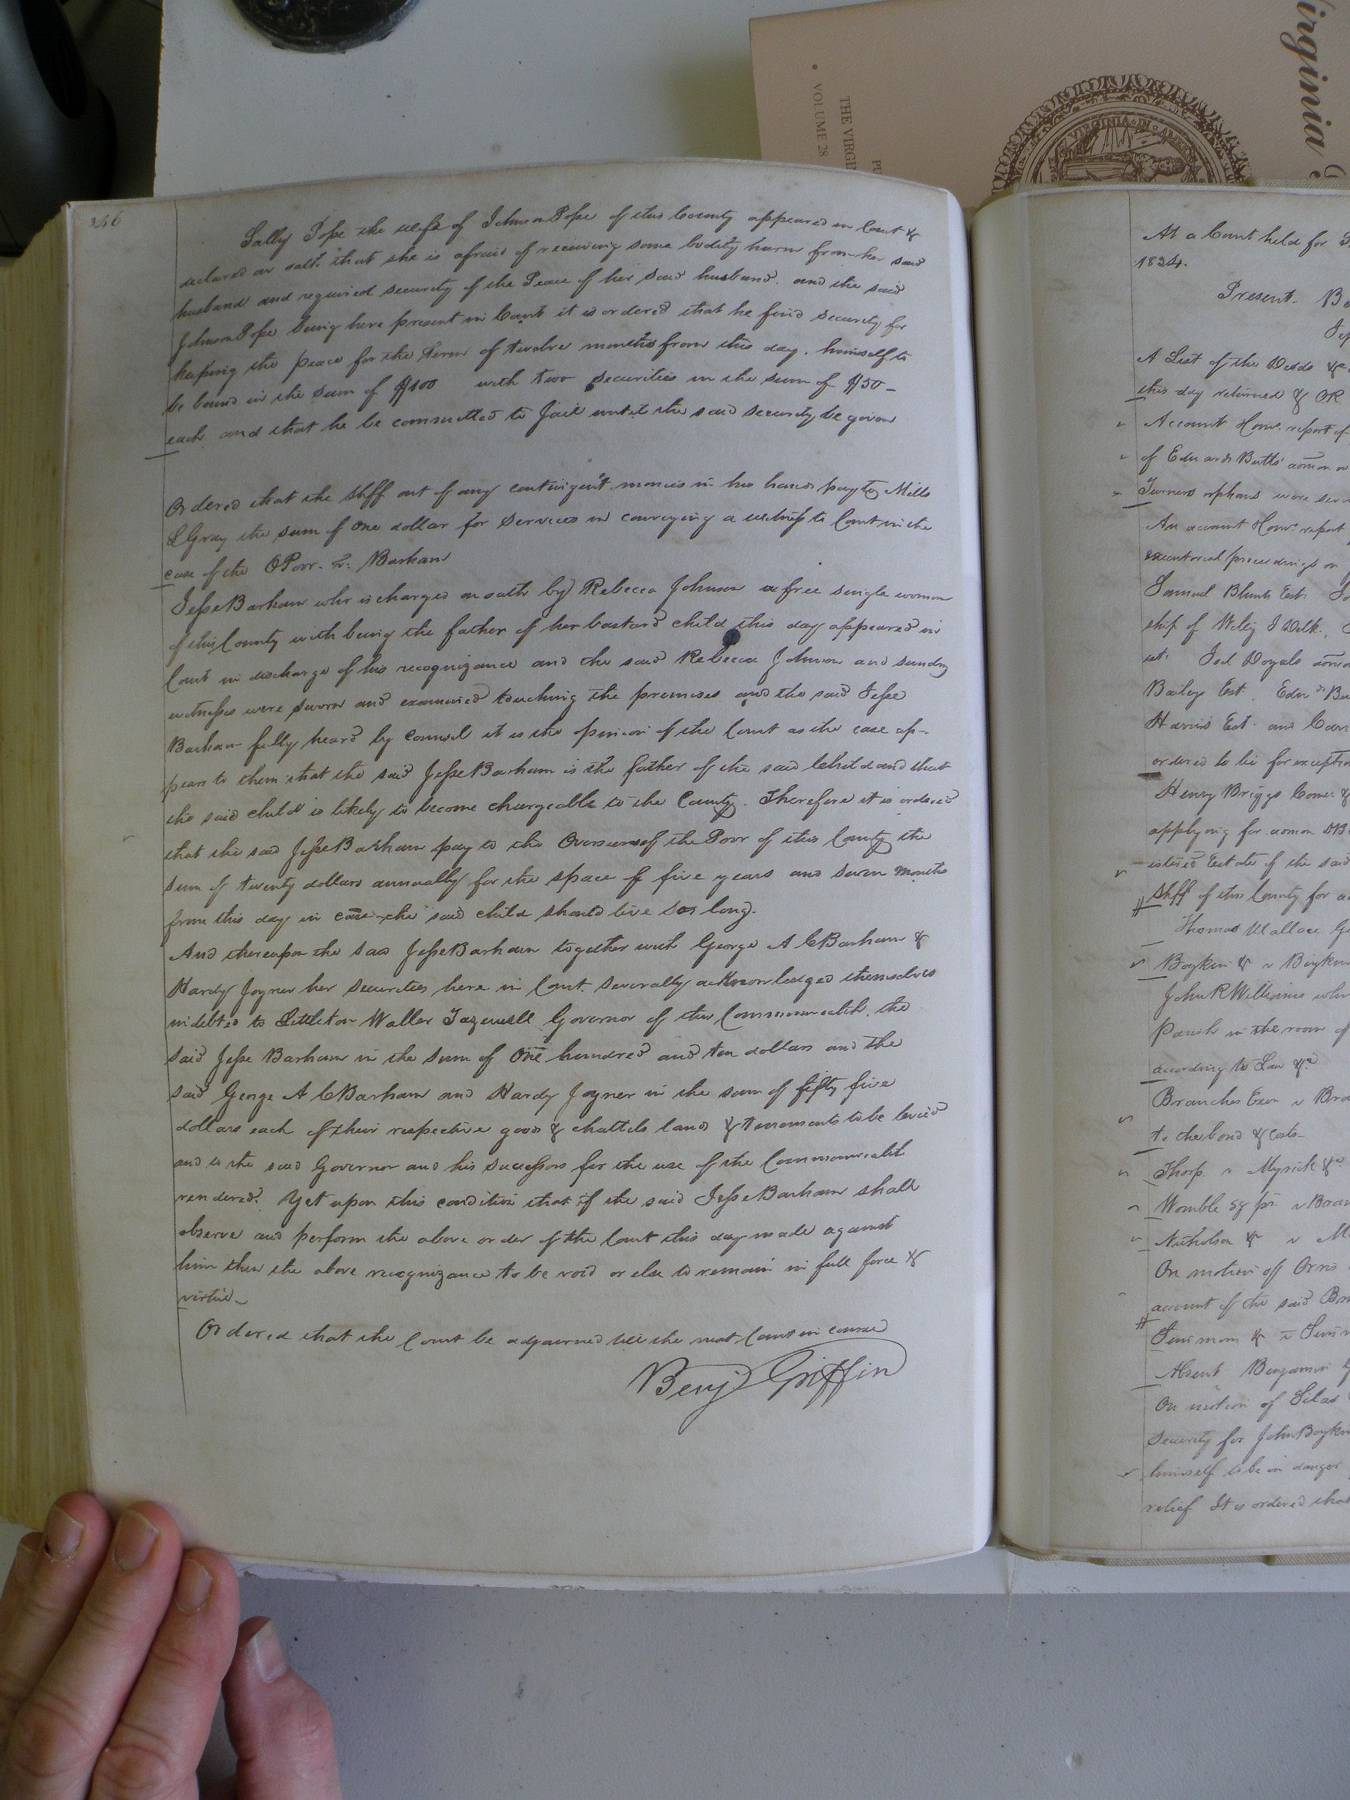 Virginia
THE VIRGI
VOLUME 28
VIRGINIA IN
346
Sally Pope the wife of Johnson Pope of this County appeared in Court &
declared on oath that she is afraid of receiving some bodily harm from her said
husband and required security of the Peace of her said husband. and the said
Johnson Pope being here present in Court it is ordered that he find security for
keeping the peace for the Term of twelve months from this day. himself to
be bound in the sum of $100 with two securities in the sum of $50 -
each and that he be committed to Jail until the said security be given
Ordered that the Shff out of any contingent monies in his hands pay to Mills
L Gray the sum of one dollar for services in conveying a witness to Court in the
case of the OPoor. v. Barham
Jesse Barham who is charged on oath by Rebecca Johnson a free single woman
of this County with being the father of her bastard child this day appeared in
Court in discharge of his recognizance and the said Rebecca Johnson and sundry
witnesses were sworn and examined touching the premises and the said Jesse
Barham fully heard by Counsel it is the opinion of the Court as the case ap-
pears to them that the said Jesse Barham is the father of the said Child and that
the said child is likely to become chargeable to the County. Therefore it is ordered
that the said Jesse Barham pay to the Overseers of the Poor of this County the
sum of twenty dollars annually for the space of five years and seven months
from this day in case the said child should live so long.
And thereupon the said Jesse Barham together with George A C Barham &
Hardy Joyner her securities, here in Court severally acknowledged themselves
indebted to Littleton Waller Tazewell Governor of this Commonwealth. the
said Jesse Barham in the sum of One hundred and ten dollars and the
said George A C Barham and Hardy Joyner in the sum of fifty five
dollars each of their respective goods & chattels lands & tenements to be levied
and to the said Governor and his successors for the use of the Commonwealth
rendered. Yet upon this condition that if the said Jesse Barham shall
observe and perform the above order of the Court this day made against
him then the above recognizance to be void or else to remain in full force &
virtue
Ordered that the Court be adjourned till the next Court in course
Benj Griffin
At a Court held for
1834.
Present. B
A List of the Deeds &c
this day returned & OR
Account Comr. report of
of Edwards Butts'
Turners orphans were
An account Comr report
proceedings on
Samuel Blunts Est.
ship of
Baileys Est.
Harris Est. and
ordered to lie for exceptio
Henry Briggs &
applying for
Estate of the said
Shff of this County for a
Thomas Wallace
Boykin & v Boykin
John R Williams who
Parish in the room of
according to Law &c
Branches Exor v Bra
to the bond & costs
Thorp v Myrick &c
Womble v Bran
Nicholson & v M
On motion of
account of the said
Absent Benjamin G
On motion of Silas
Security for John Boykin
himself to be in danger
relief It is ordered that